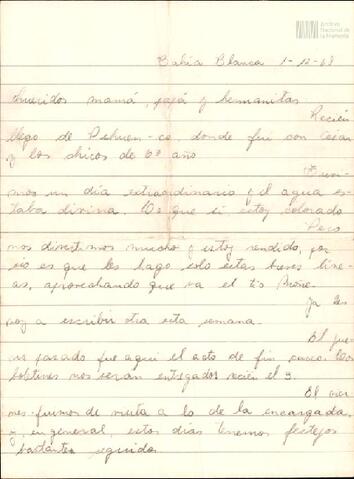 Archivo
Nacional de
la Memoria
Bahía Blanca 1-12-68
Queridos mamá, papá y hermanitas
Recién
llego de Pehuen-co, donde fui con César
y los chicos de 6º año
mos un día extraordinario y el agua es-
taba divina. Yo que sí estoy colorado
Pero
nos divertimos mucho y estoy rendido, por
eso es que les hago solo estas breves líne-
as, aprovechando que va el tío
Ya les
voy a escribir otra esta semana.
El jue-
ves pasado fue aquí el acto de fin curso. Los
boletines nos serán entregados recién el 9.
El vier-
nes fuimos de visita a lo de la encargada,
y, en general, estos días tenemos festejos
bastante seguidos.